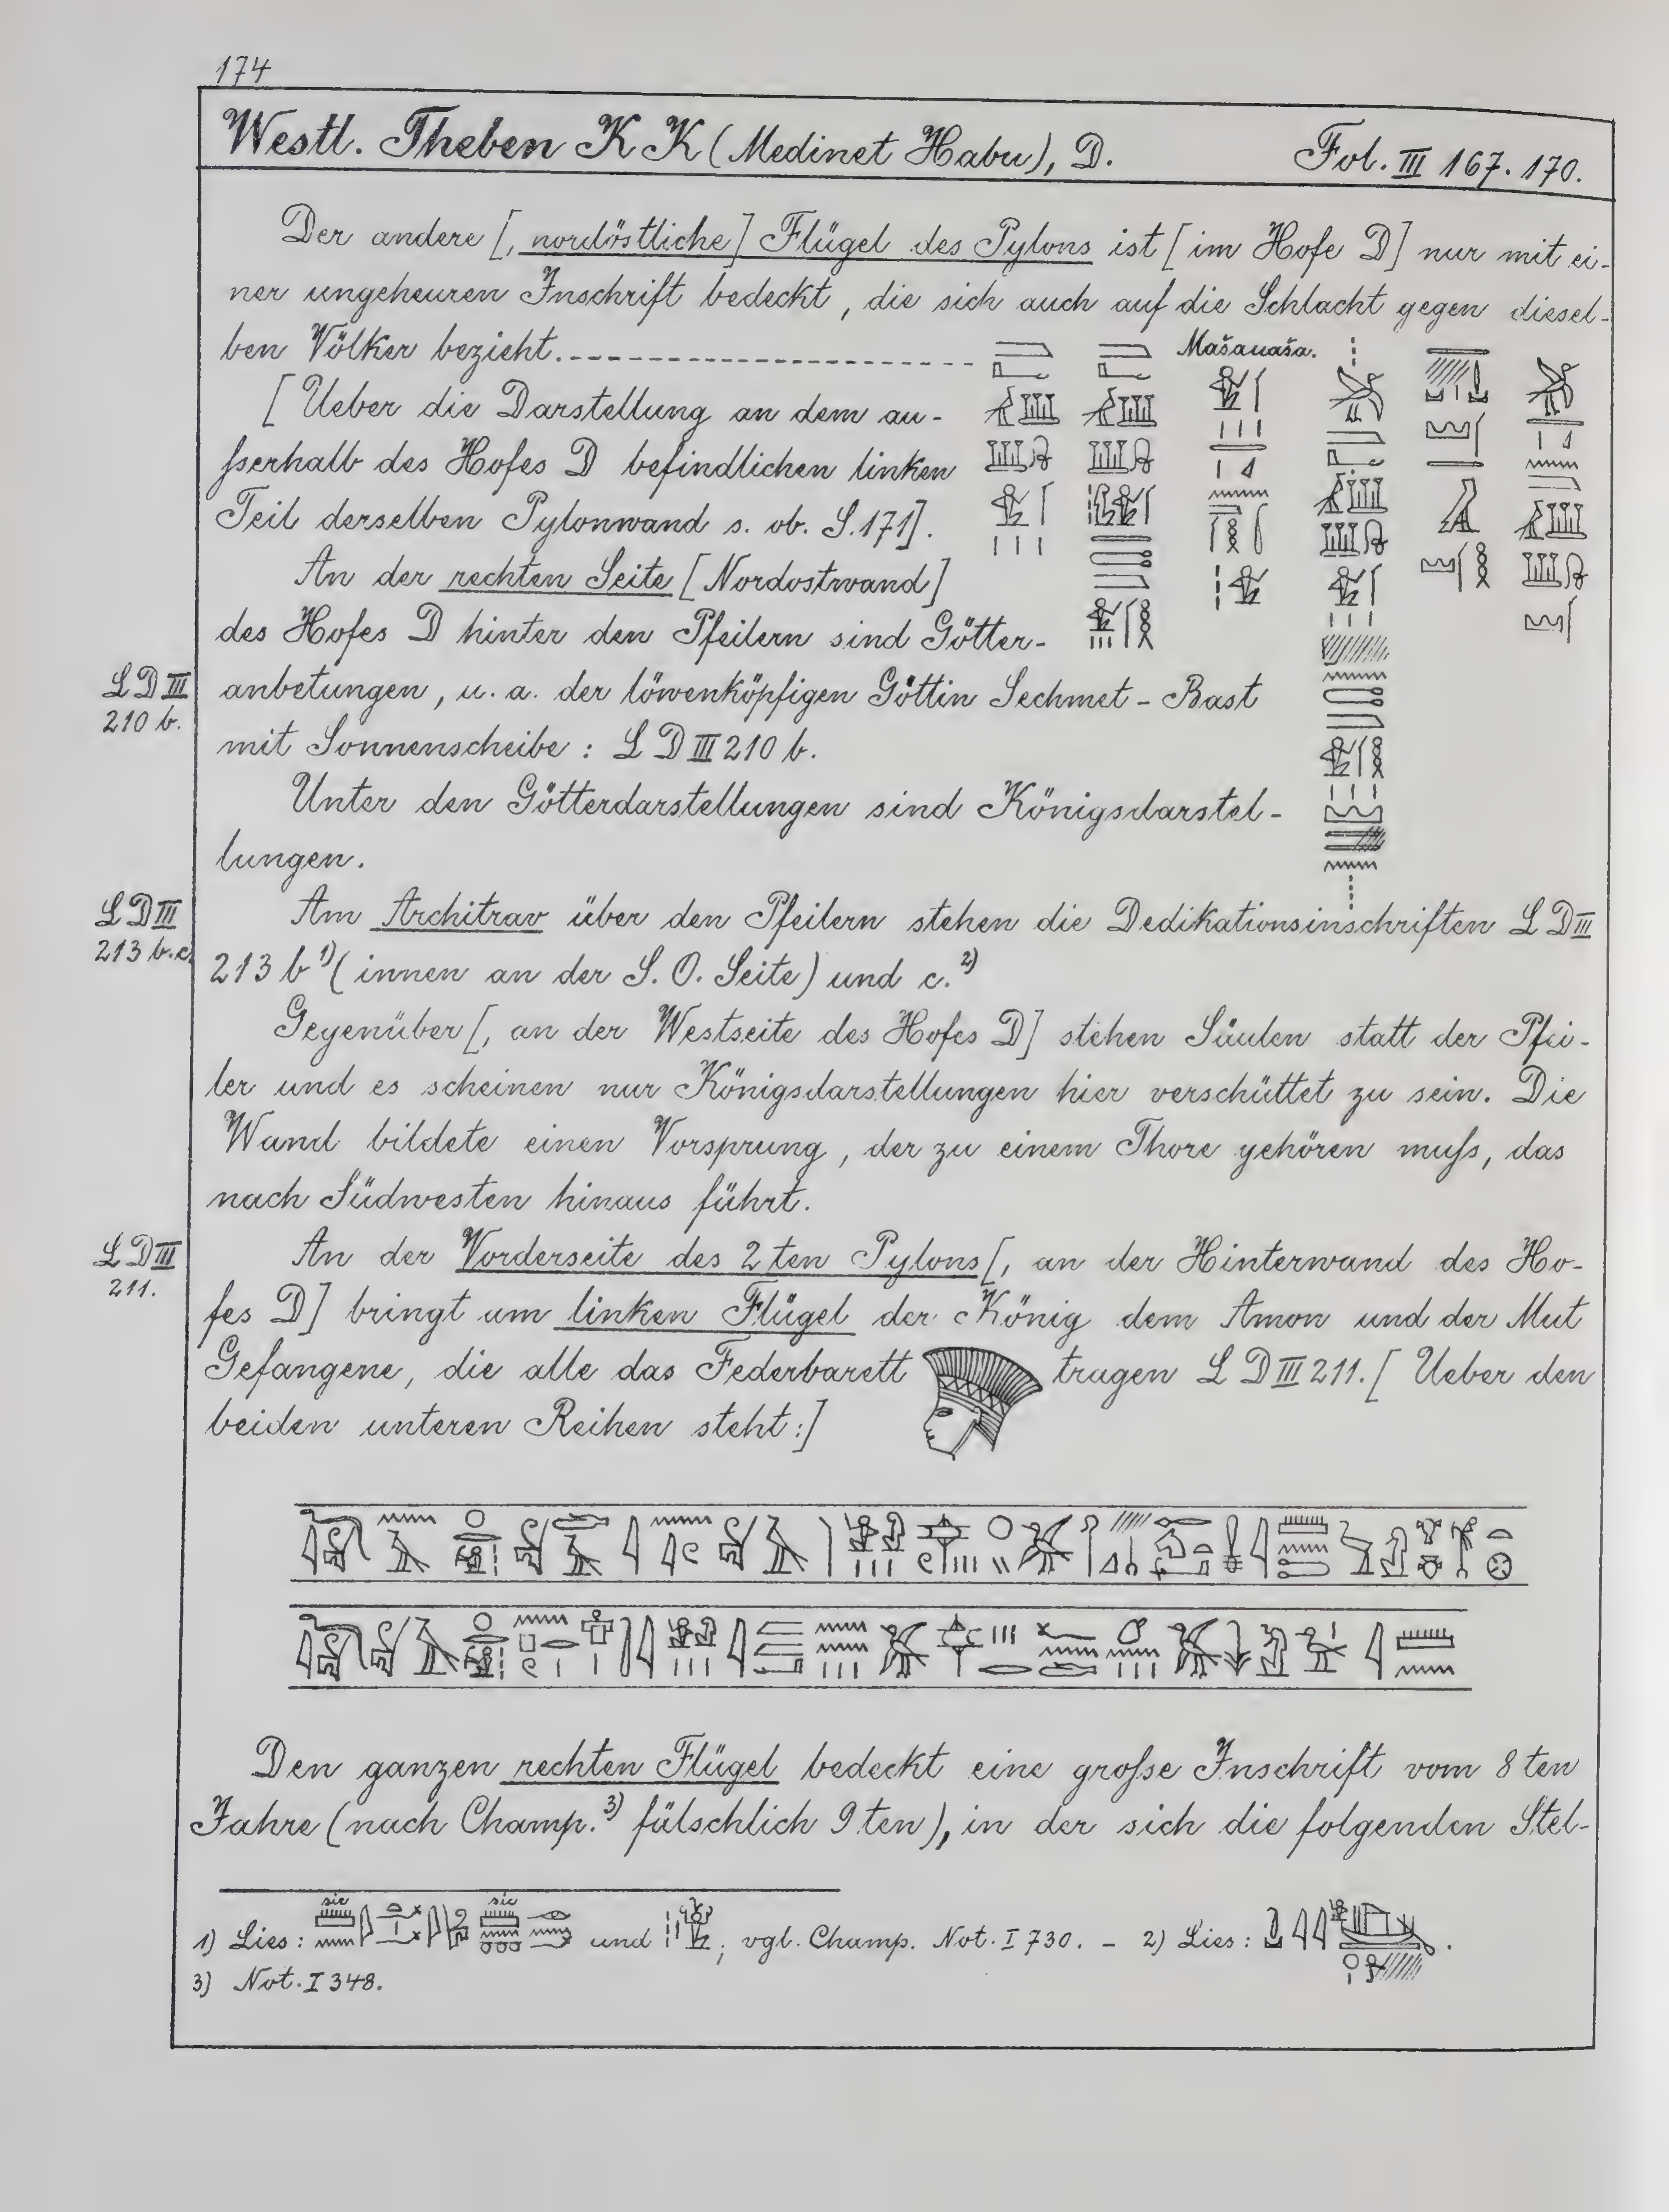 174
Westl. Theben KK (Medinet Habu), D. Fol. III 167. 170.
Der andere [, nordöstliche] Flügel des Pylons ist [im Hofe D] nur mit ei-
ner ungeheuren Inschrift bedeckt, die sich auch auf die Schlacht gegen diesel-
ben Völker bezieht.
Mašauaša.
[Ueber die Darstellung an dem au-
ſserhalb des Hofes D befindlichen linken
Teil derselben Pylonwand s. ob. S. 171].
An der rechten Seite [Nordostwand]
des Hofes D hinter den Pfeilern sind Götter-
LD III
210 b.
anbetungen, u. a. der löwenköpfigen Göttin Sechmet - Bast
mit Sonnenscheibe : LD III 210 b.
Unter den Götterdarstellungen sind Königsdarstel-
lungen.
LD III
213 b.c.
Am Architrav über den Pfeilern stehen die Dedikationsinschriften LD III
213 b 1) (innen an der S. O. Seite) und c. 2)
Gegenüber [, an der Westseite des Hofes D] stehen Säulen statt der Pfei-
ler und es scheinen nur Königsdarstellungen hier verschüttet zu sein. Die
Wand bildete einen Vorsprung, der zu einem Thore gehören muſs, das
nach Südwesten hinaus führt.
LD III
211.
An der Vorderseite des 2ten Pylons [, an der Hinterwand des Ho-
fes D] bringt am linken Flügel der König dem Amon und der Mut
Gefangene, die alle das Federbarett tragen LD III 211. [Ueber den
beiden unteren Reihen steht:]
Den ganzen rechten Flügel bedeckt eine groſse Inschrift vom 8ten
Jahre (nach Champ. 3) fälschlich 9ten), in der sich die folgenden Stel-
sic sic
1) Lies : und ; vgl. Champ. Not. I 730. - 2) Lies : .
3) Not. I 348.